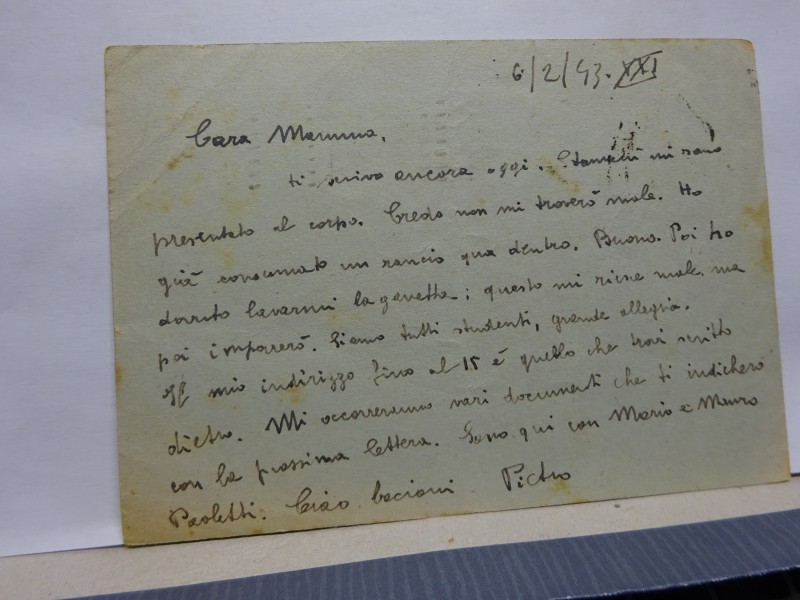 6/2/43. XXI
Cara Mamma,
ti scrivo ancora oggi. Stamani mi sono
presentato al corpo. Credo non mi troverò male. Ho
già consumato un rancio qua dentro. Buono. Poi ho
dovuto lavarmi la gavetta; questo mi riesce male ma
poi imparerò. Siamo tutti studenti, grande allegria.
Il mio indirizzo fino al 15 è quello che trovi scritto
dietro. Mi occorreranno vari documenti che ti indicherò
con la prossima lettera. Sono qui con Mario e Mauro
Paoletti. Ciao bacioni Pietro